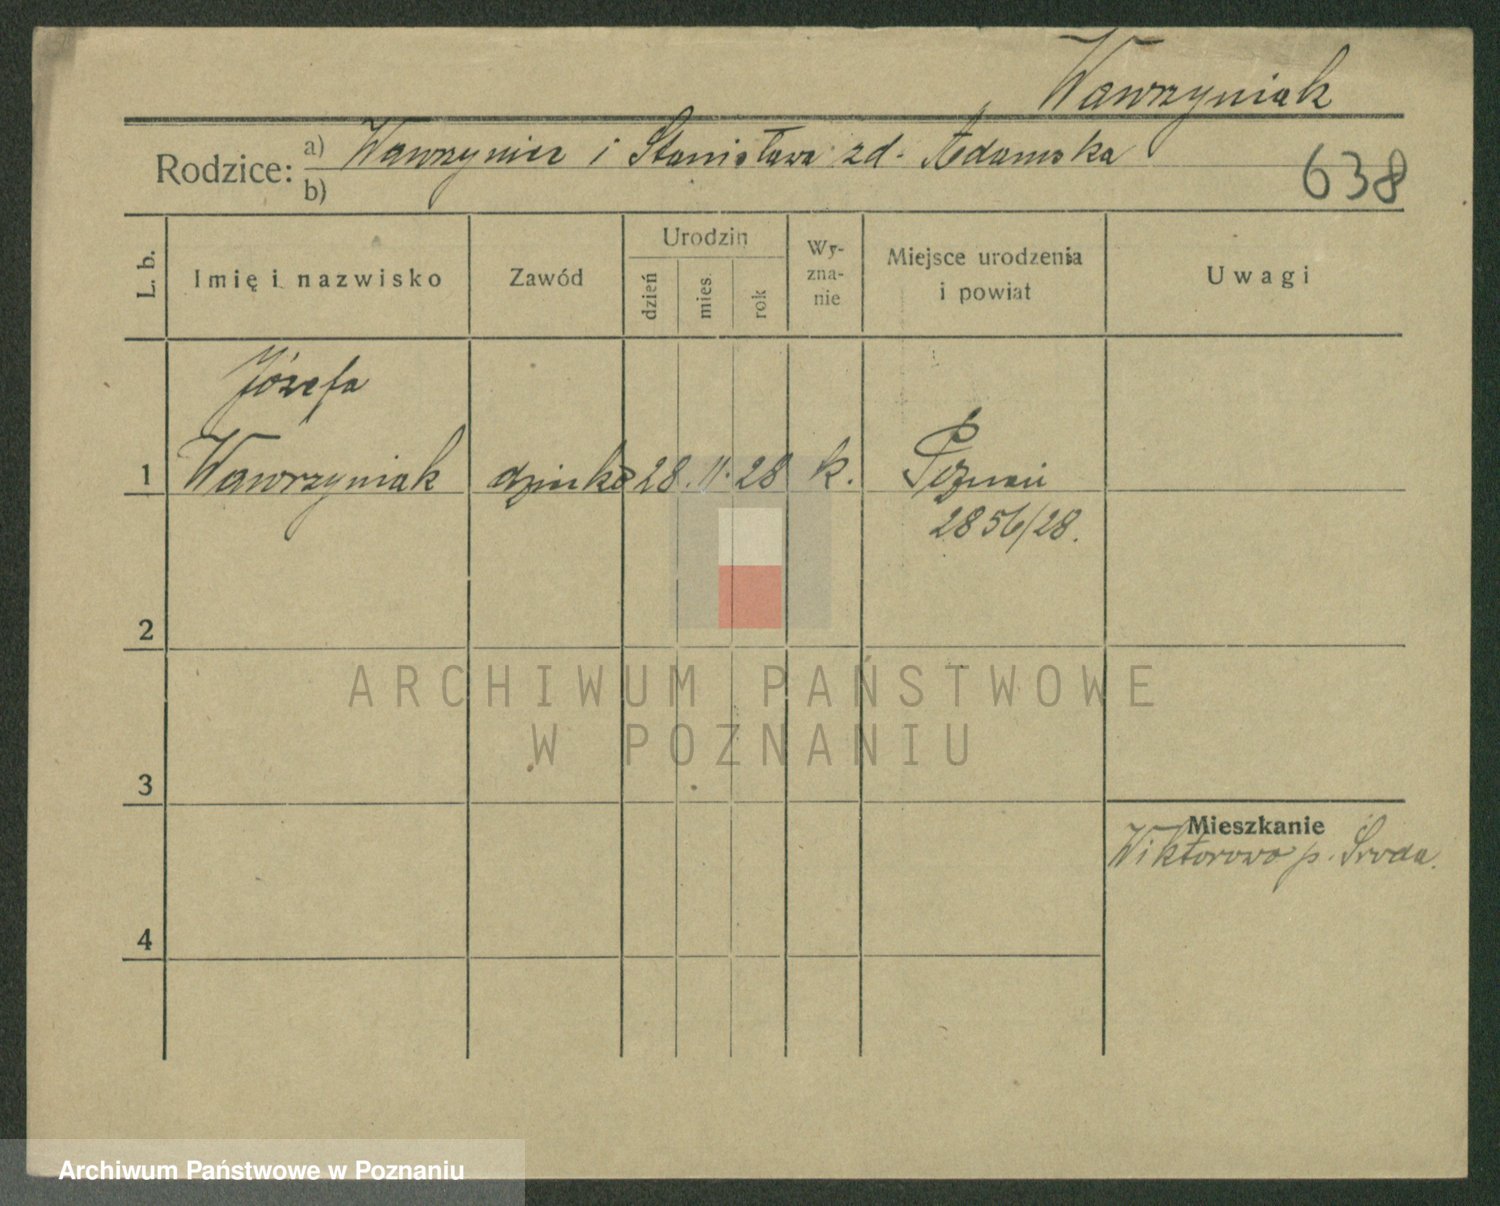 Wawrzyniak
Rodzice: a) Wawrzyniec i Stanisława zd. Adamska
b)
638
L. b.
Imię i nazwisko
Zawód
Urodzin
dzień
mies.
rok
Wy-
zna-
nie
Miejsce urodzenia
i powiat
Uwagi
Józefa
1 Wawrzyniak dziecko 28. 11. 28 k. Poznań
2856/28.
2
3
4
Mieszkanie
Wiktorowo p. Środa.
ARCHIWUM PAŃSTWOWE
W POZNANIU
Archiwum Państwowe w Poznaniu